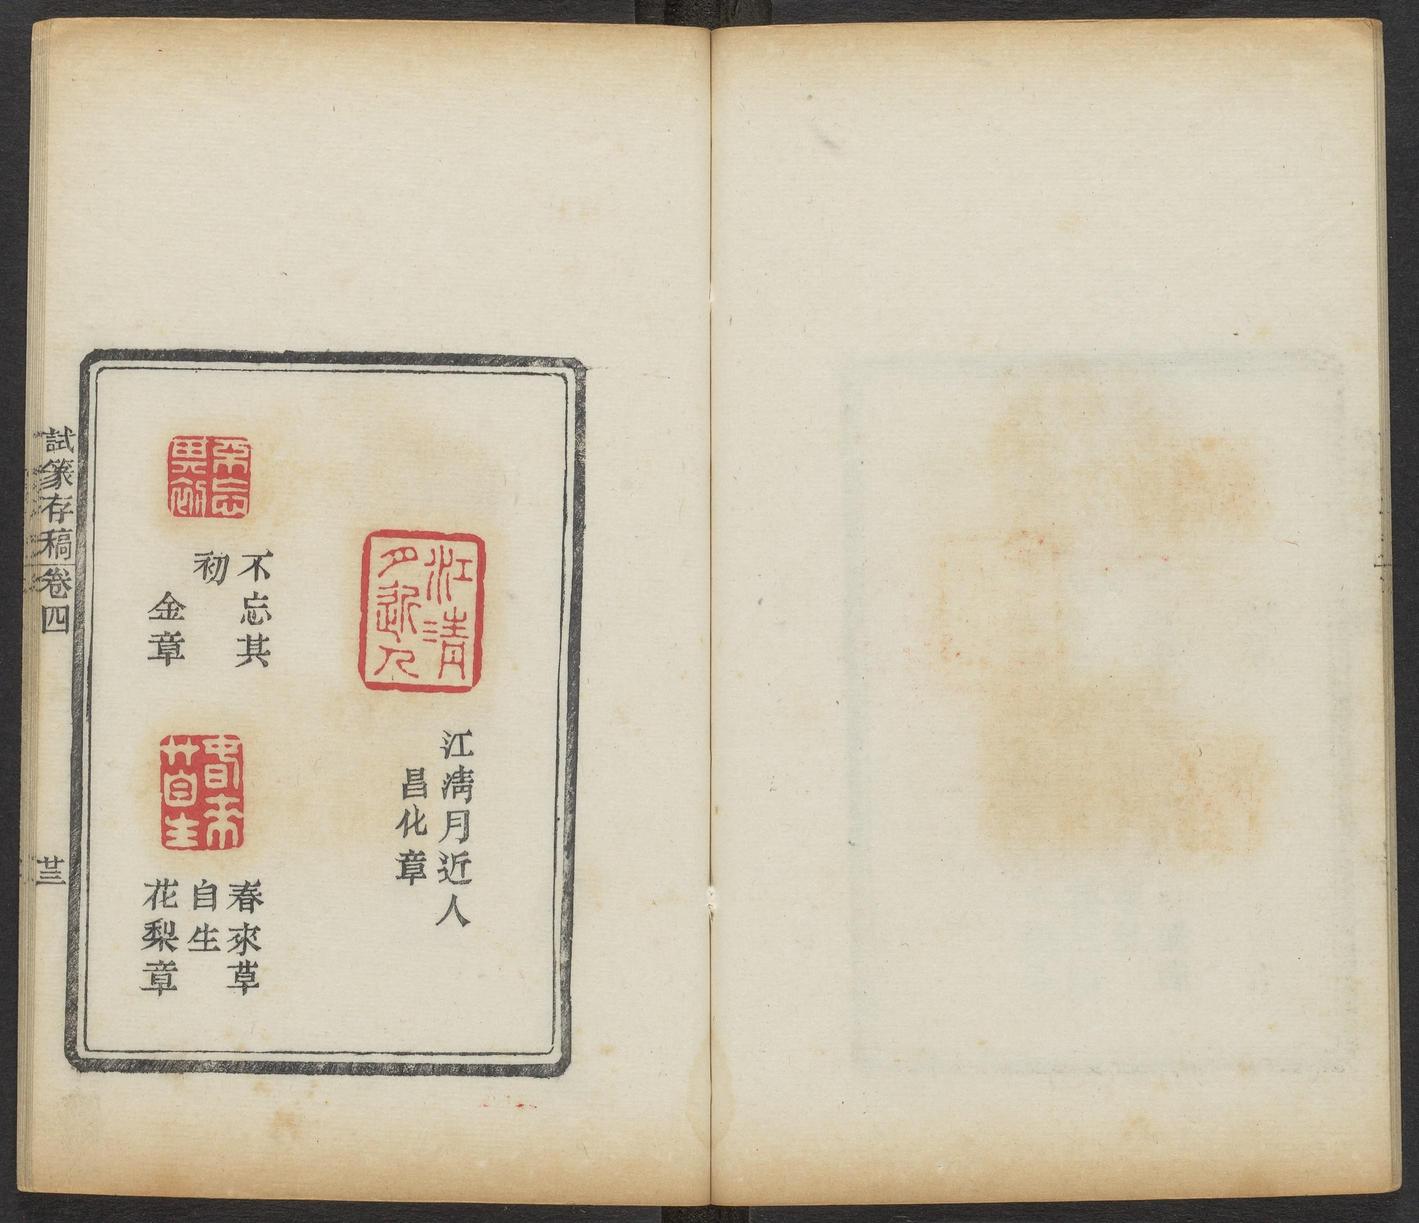 江清月近人
江淸月近人
昌化章
不忘其初
不忘其
初
金章
春來草自生
春來草
自生
花梨章
試篆存稿 卷四
廿三